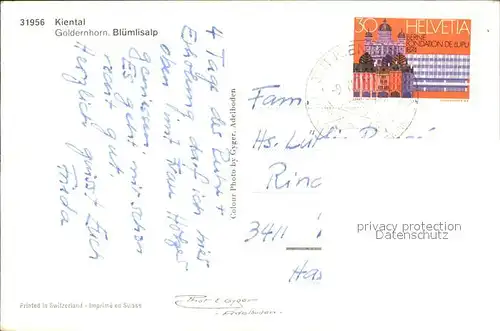 31956 Kiental
Goldernhorn. Blümlisalp
4 Tage des Ruhe +
Erholung darf ich mit
oben mit Frau
geniessen.
Es geht mir schon
recht gut.
Herzlich grüsst Euch
Frida
Colour Photo by Gyger, Adelboden
30 HELVETIA
BERNE
FONDATION DE L'UPU
1874
Fam.
Hs.
3411
privacy protection
Datenschutz
Printed in Switzerland - Imprimé en Suisse
Phot. E. Gyger
- Adelboden -